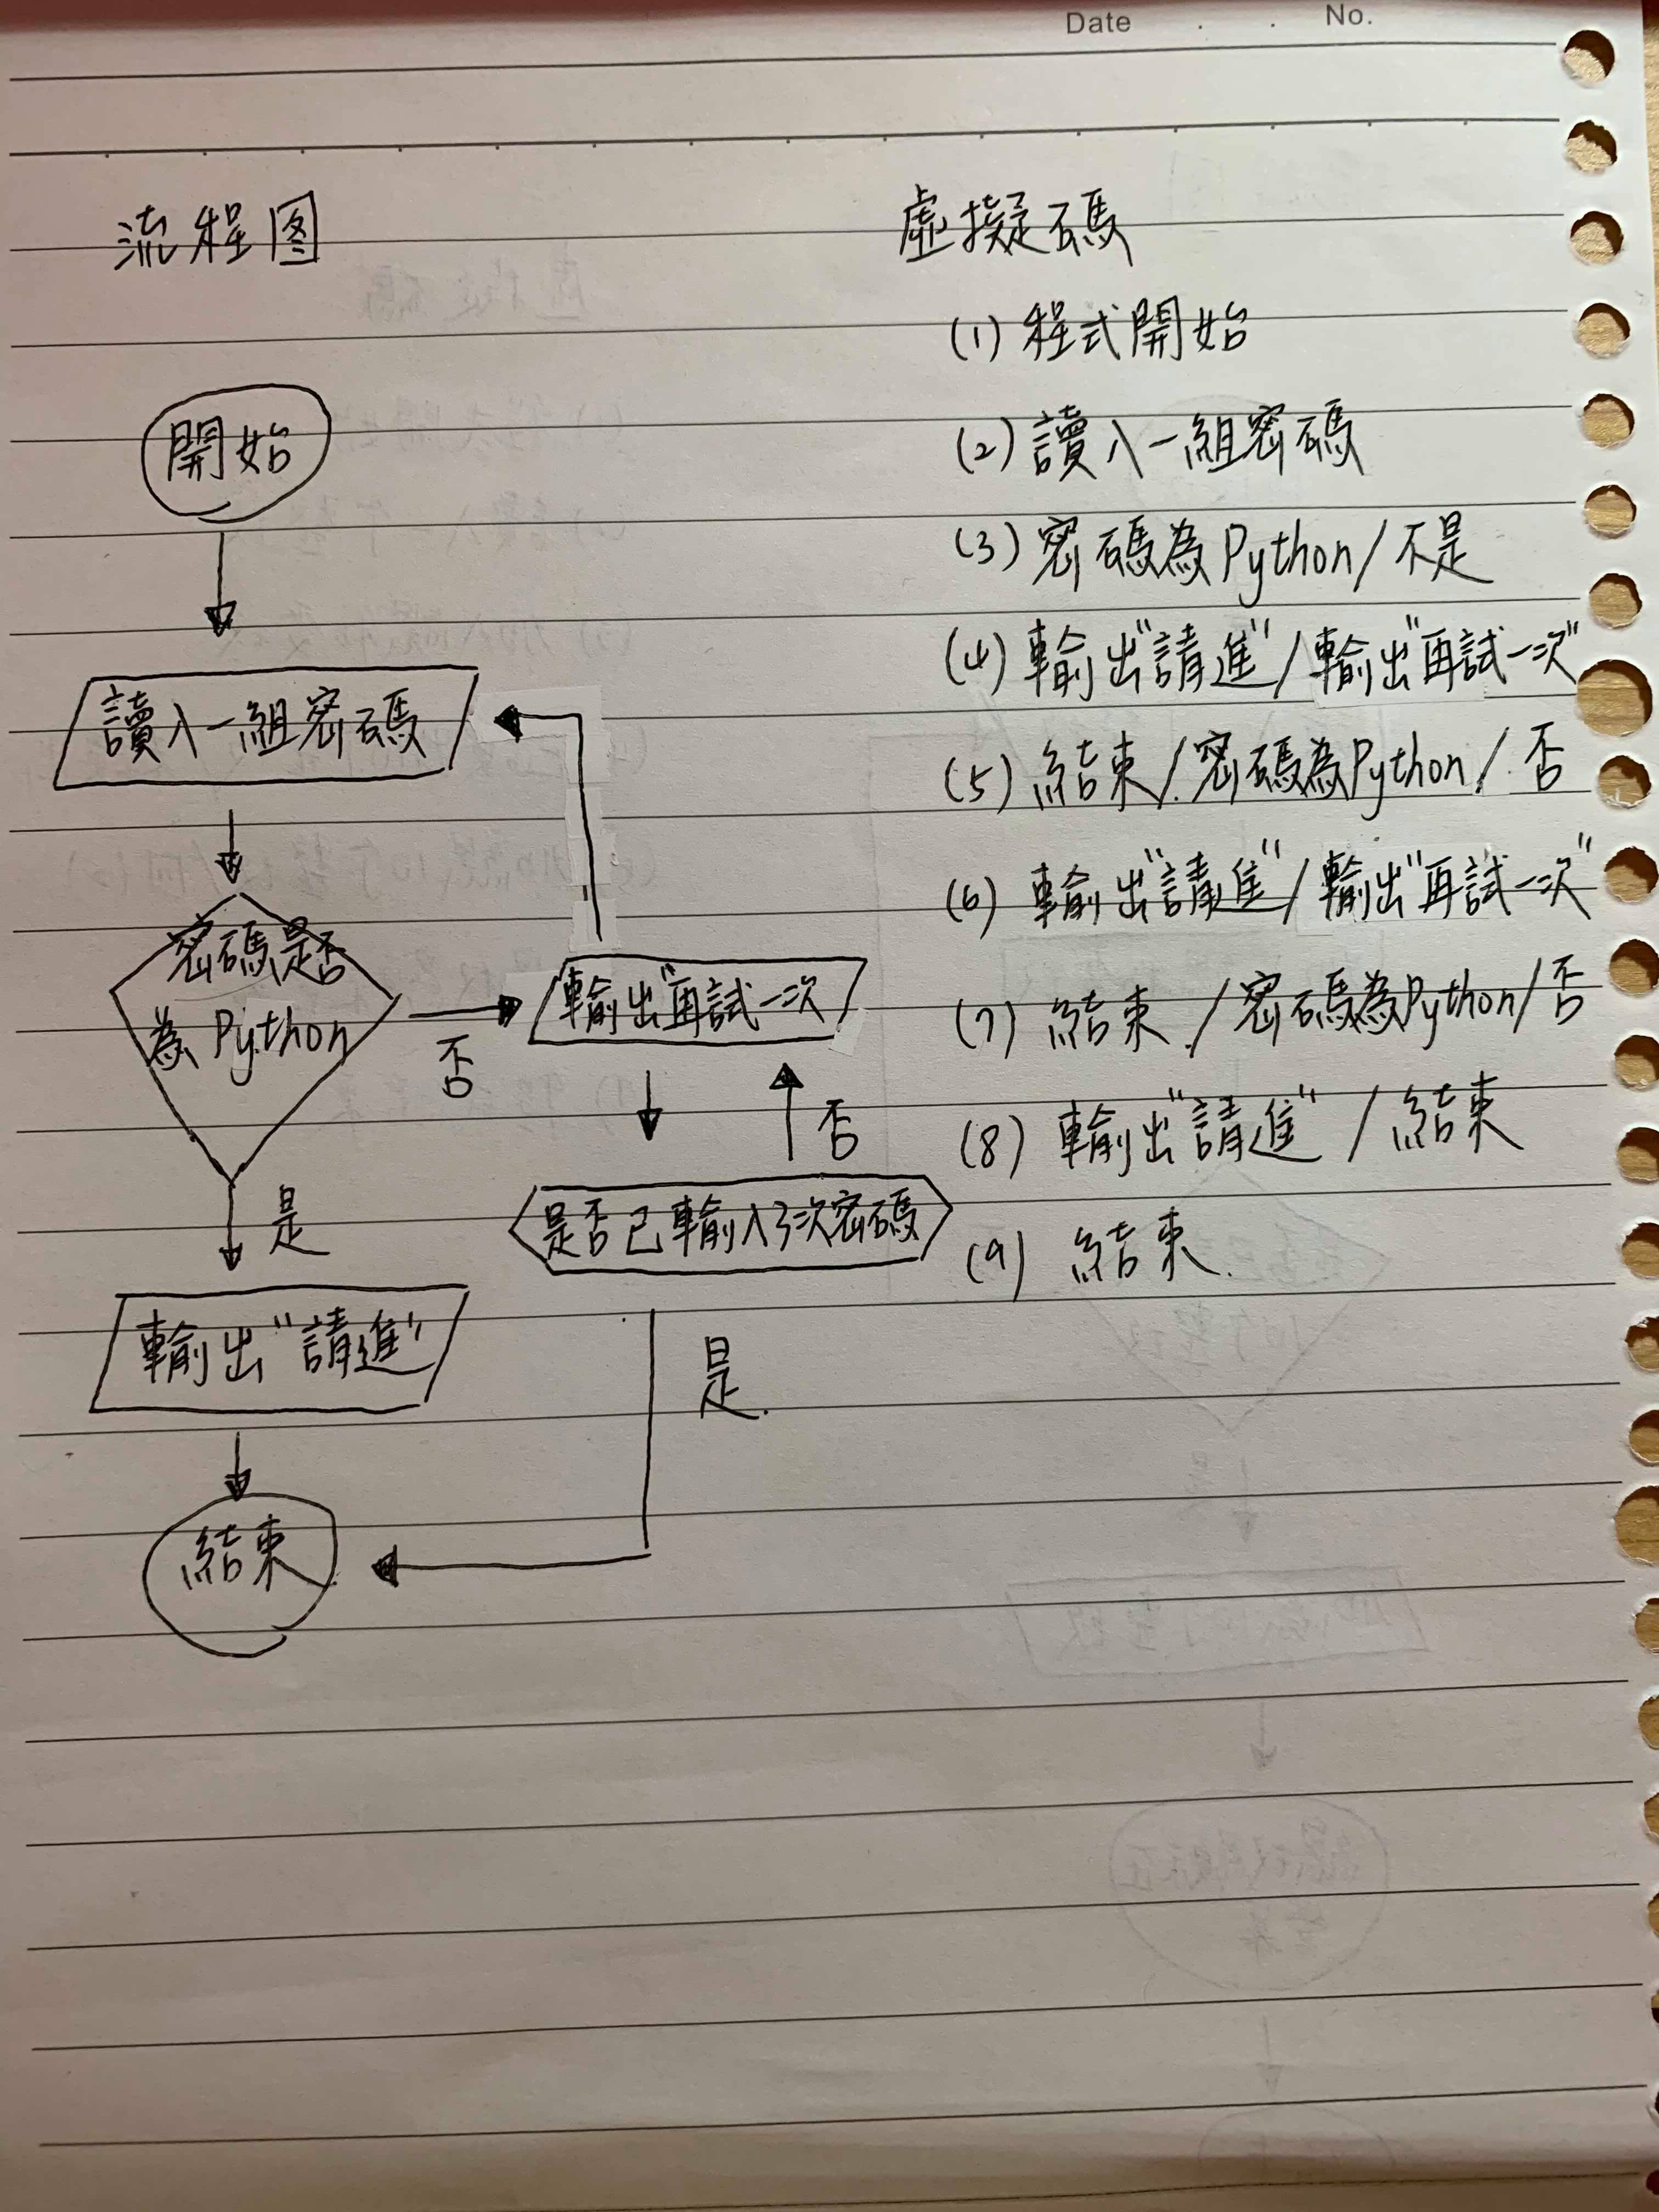 Date . . No.
流程图
開始
讀入一組密碼
密碼是否
為 Python
否
輸出"再試一次
否
是
是否已輸入3次密碼
輸出"請進"
是.
結束
虛擬碼
(1) 程式開始
(2) 讀入一組密碼
(3) 密碼為Python/不是
(4) 輸出"請進"/輸出"再試一次"
(5) 結束/密碼為Python/否
(6) 輸出"請進"/輸出"再試一次"
(7) 結束/密碼為Python/否
(8) 輸出"請進"/結束
(9) 結束.